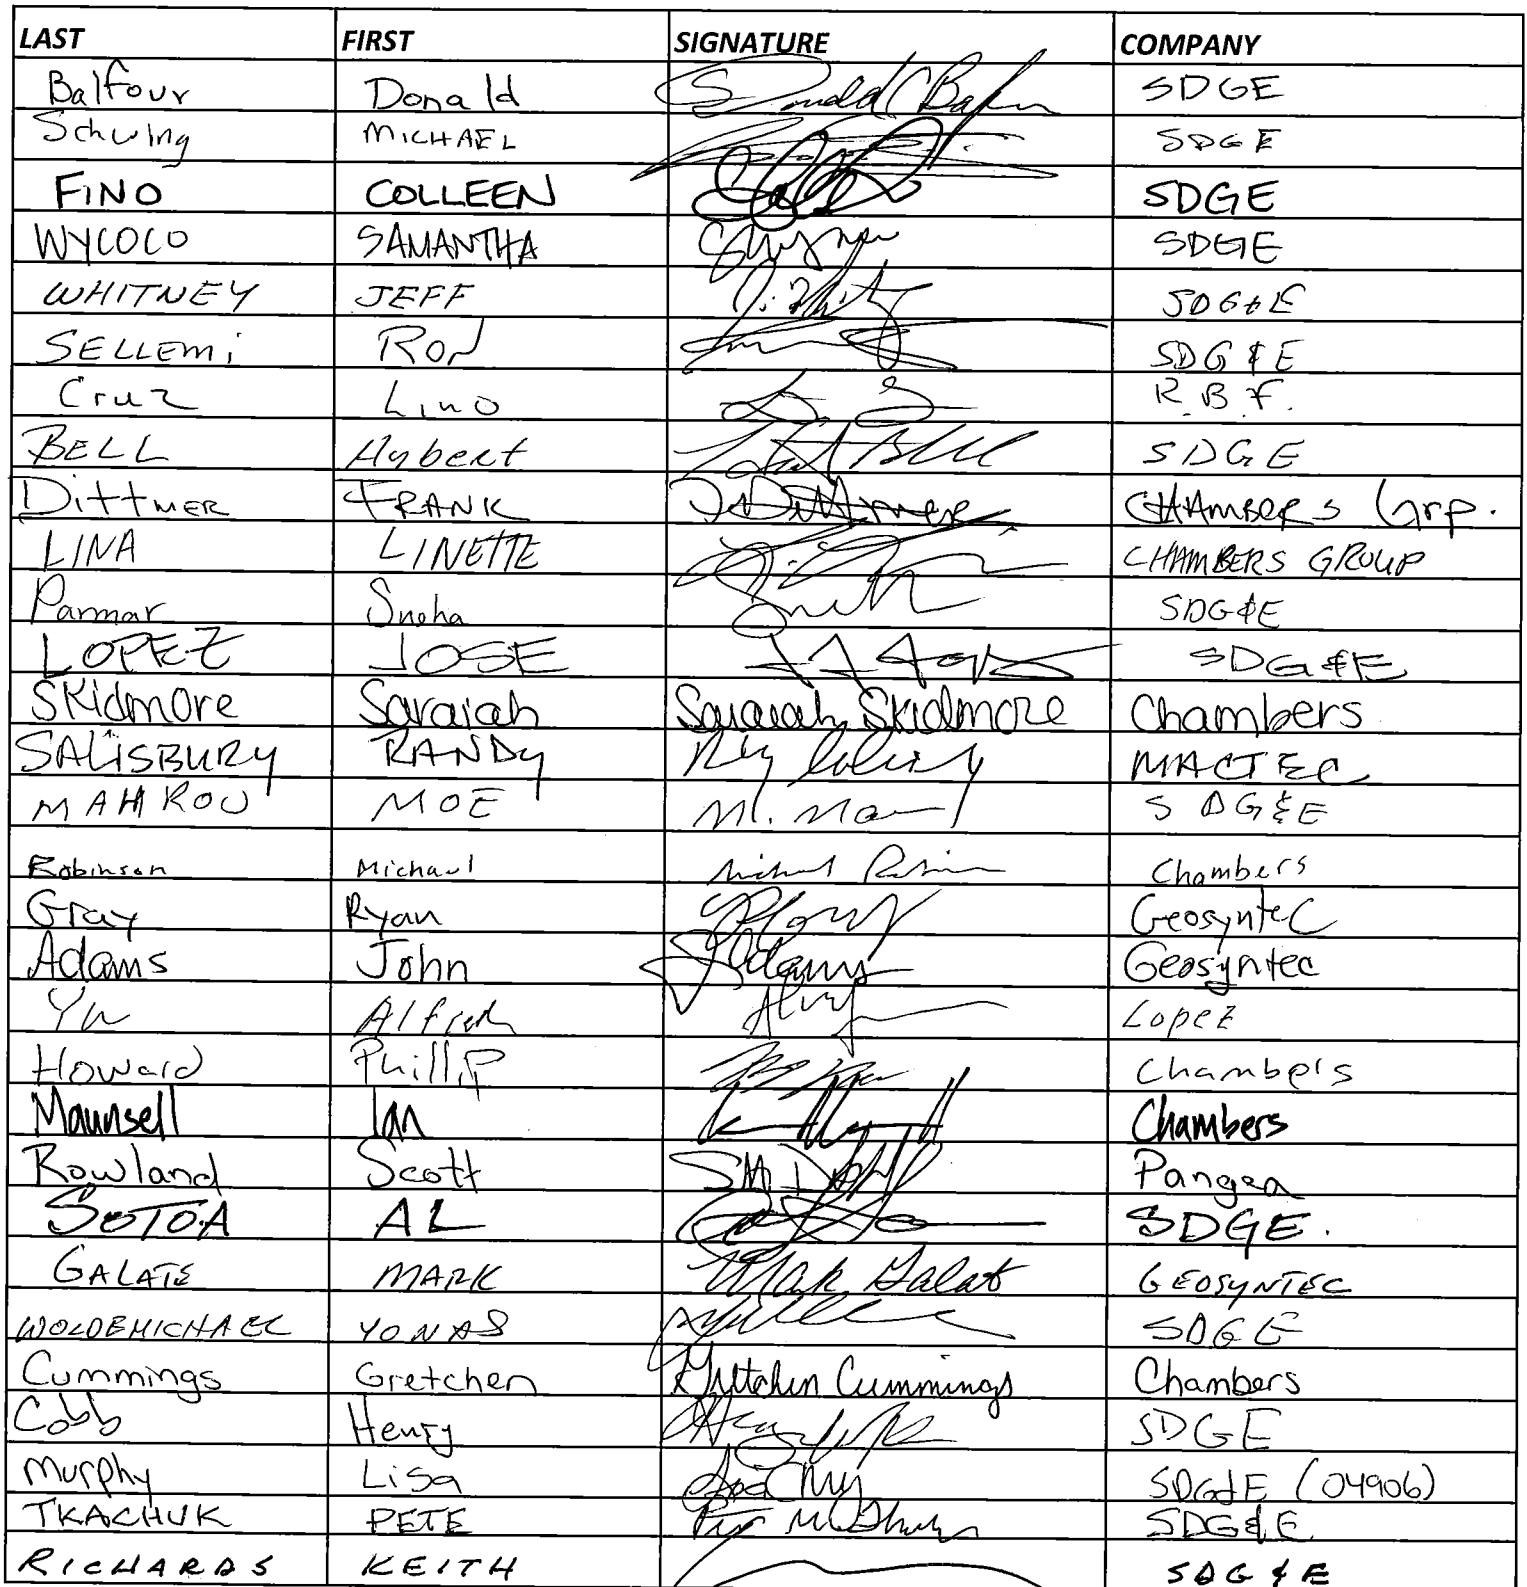 LAST FIRST SIGNATURE COMPANY
Balfour Donald SDGE
Schwing MICHAEL SDGE
FINO COLLEEN SDGE
WYCOCO SAMANTHA SDGE
WHITNEY JEFF SDG&E
SELLEMi RON SDG&E
Cruz Lino R.B.F.
BELL Hybert SDGE
DittmER FRANK CHAmBERS Grp.
LINA LINETTE CHAMBERS GROUP
Parmar Sneha SDG&E
LOPEZ JOSE SDG&E
Skidmore Saraiah Saraiah Skidmore Chambers
SALiSBURY RANDy MACTEC
MAHROU MOE M. SDG&E
Robinson Michael Chambers
Gray Ryan GeosynteC
Adams John JAdams Geosyntec
Yu Alfred Lopez
Howard Phillip Chambers
Maunsell Ian Chambers
Rowland Scott Pangea
SOTOA AL SDGE.
GALATE MARK Mark Galat GEOSYNTEC
WOLDEMICHAEL YONAS SDGE
Cummings Gretchen Gretchen Cummings Chambers
Cobb Henry SDGE
Murphy Lisa SDG&E (04906)
TKACHUK PETE SDG&E
RICHARDS KEITH SDG&E